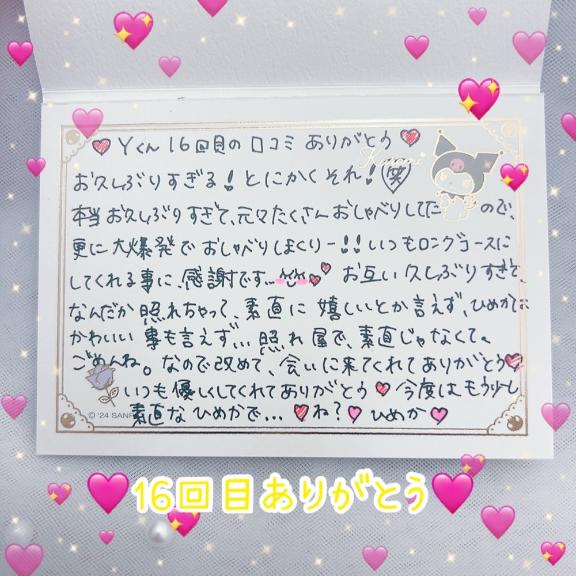 Yくん16回目の口コミありがとう
Kuromi
お久しぶりすぎる!とにかくそれ!(笑)
本当お久しぶりすぎて、元々たくさんおしゃべりしてたので、
更に大爆発でおしゃべりしまくりー!!いつもロングコースに
してくれる事に、感謝です… お互い久しぶりすぎて、
なんだか照れちゃって、素直に嬉しいとか言えず、ひめかは
かわいい事も言えず…照れ屋で、素直じゃなくて。
ごめんね。なので改めて、会いに来てくれてありがとう
いつも優しくしてくれてありがとう 今度はもう少し
© '24 SANR
素直なひめかで…ね?ひめか
16回目ありがとう